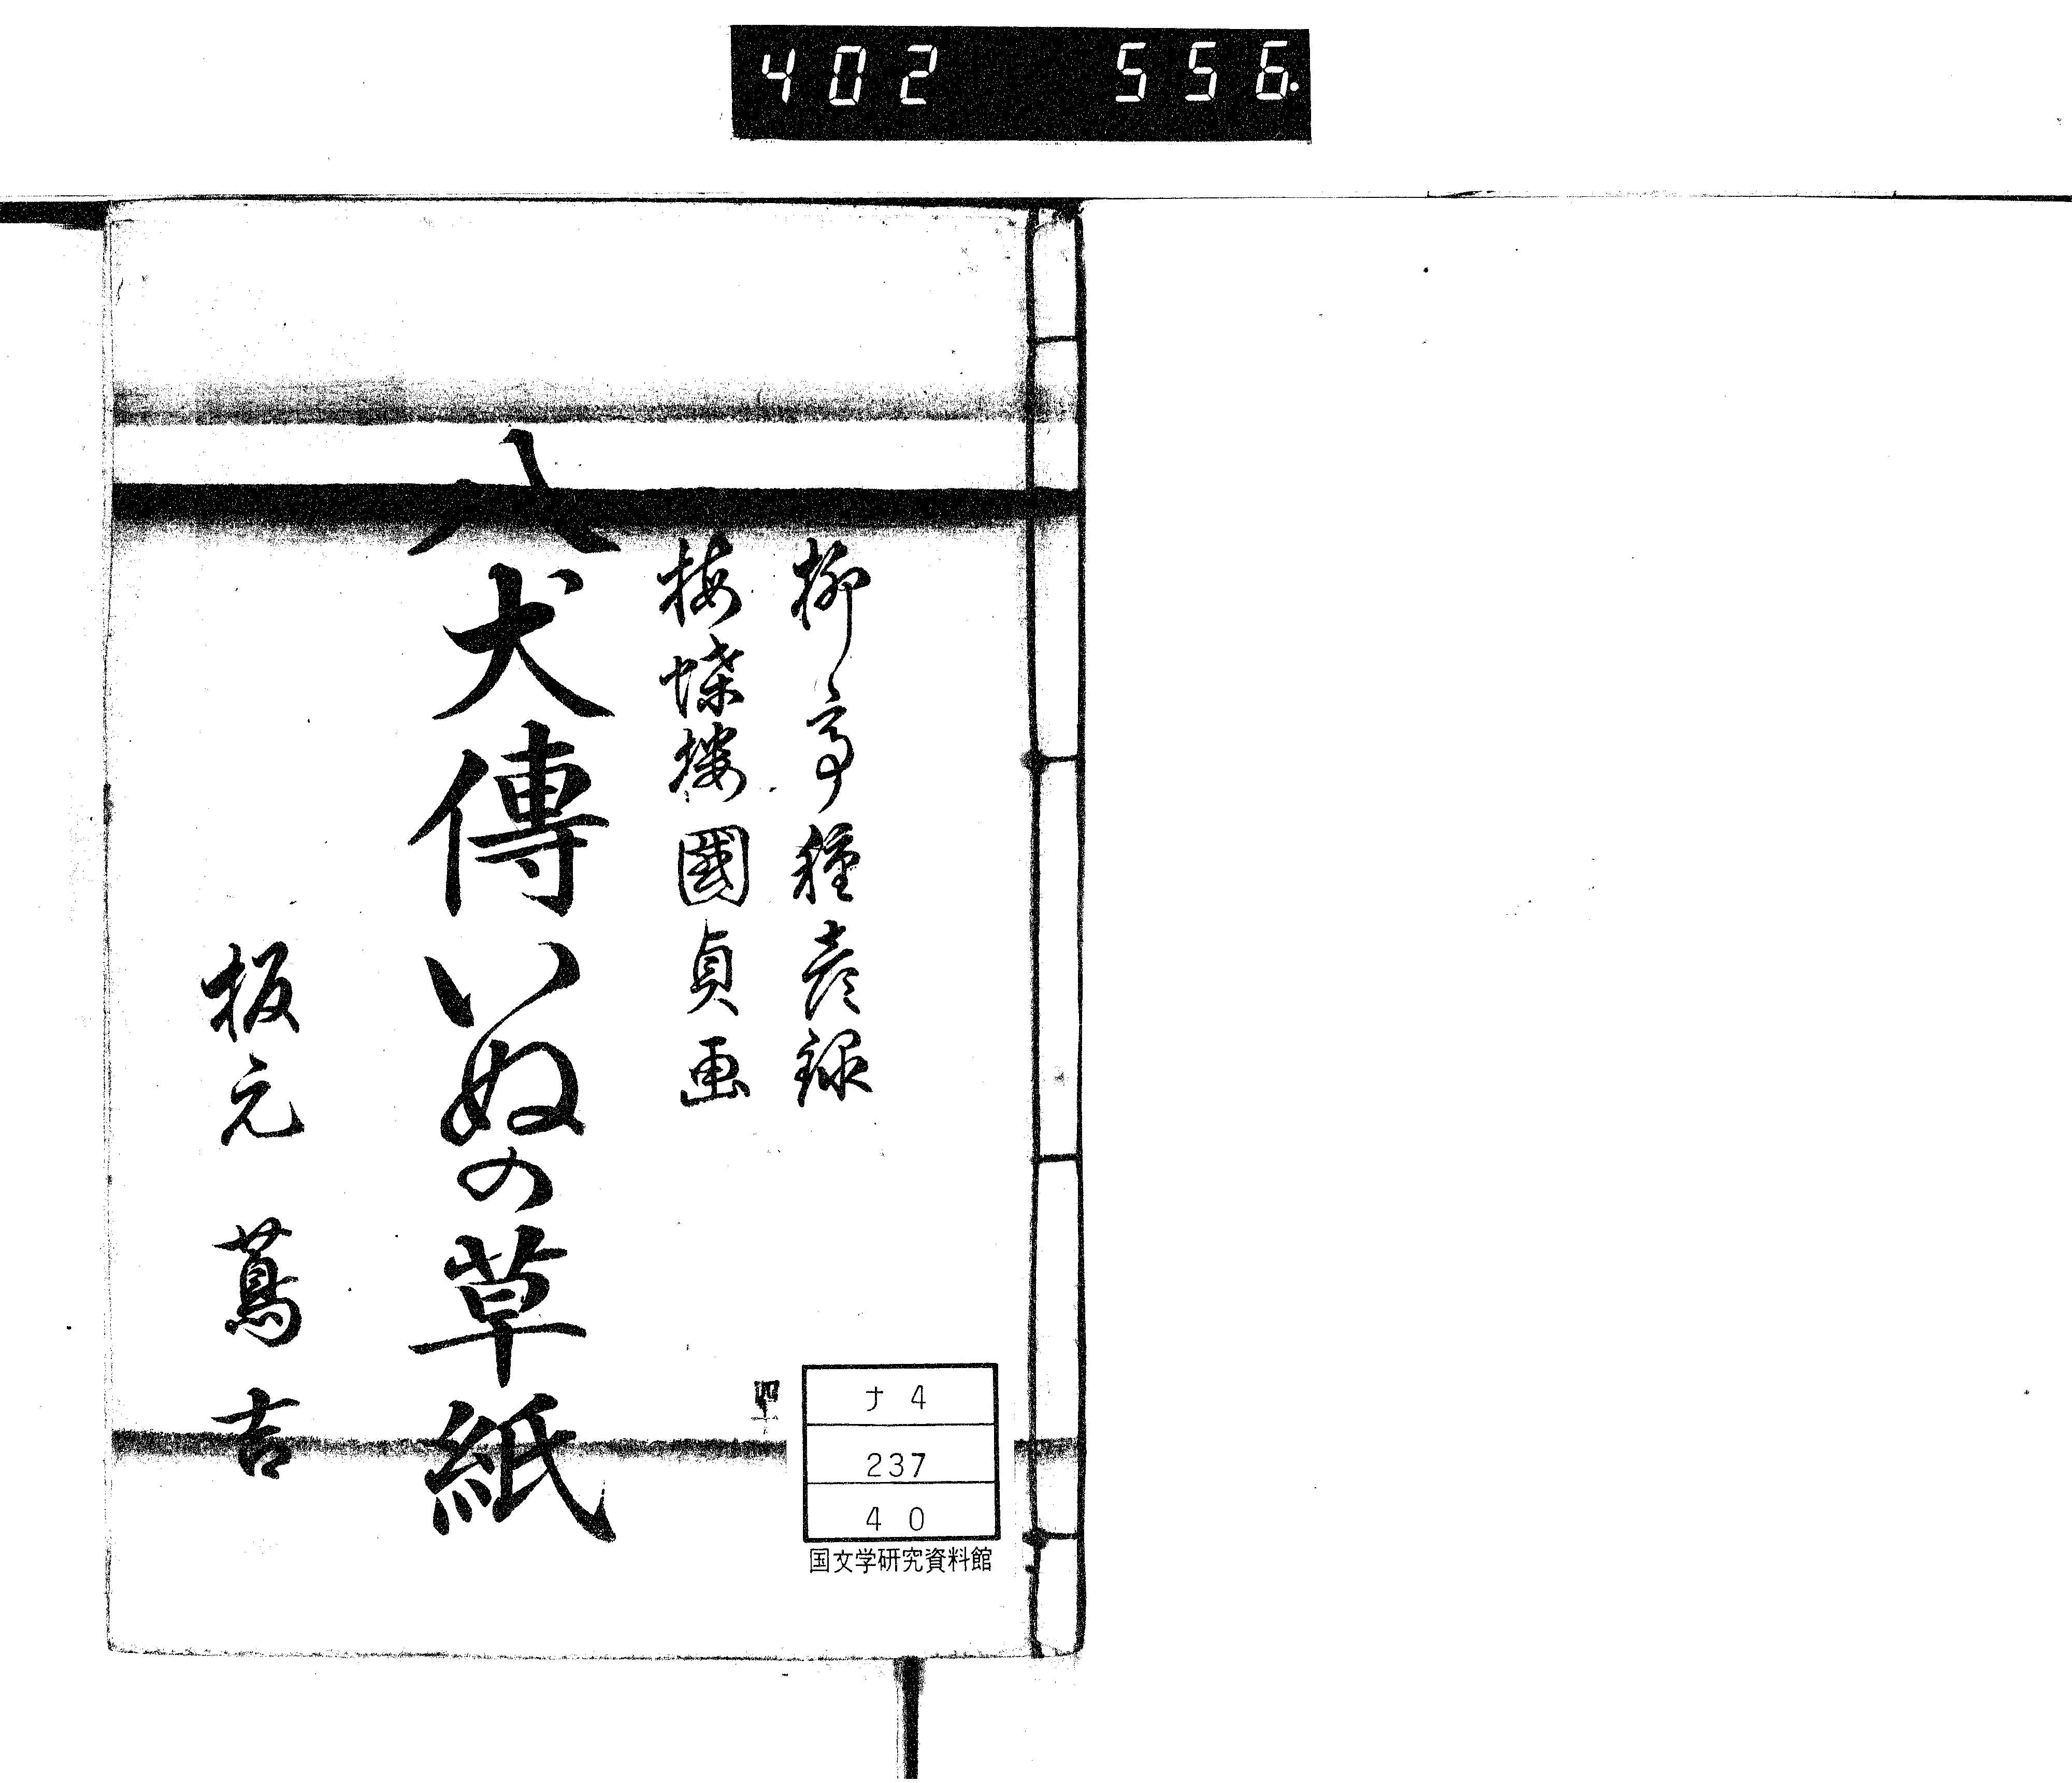 402 556.
柳亭種彦録
梅蝶楼國貞画
八犬傳いぬの草紙
板元 蔦吉
ナ 4
237
4 0
国文学研究資料館